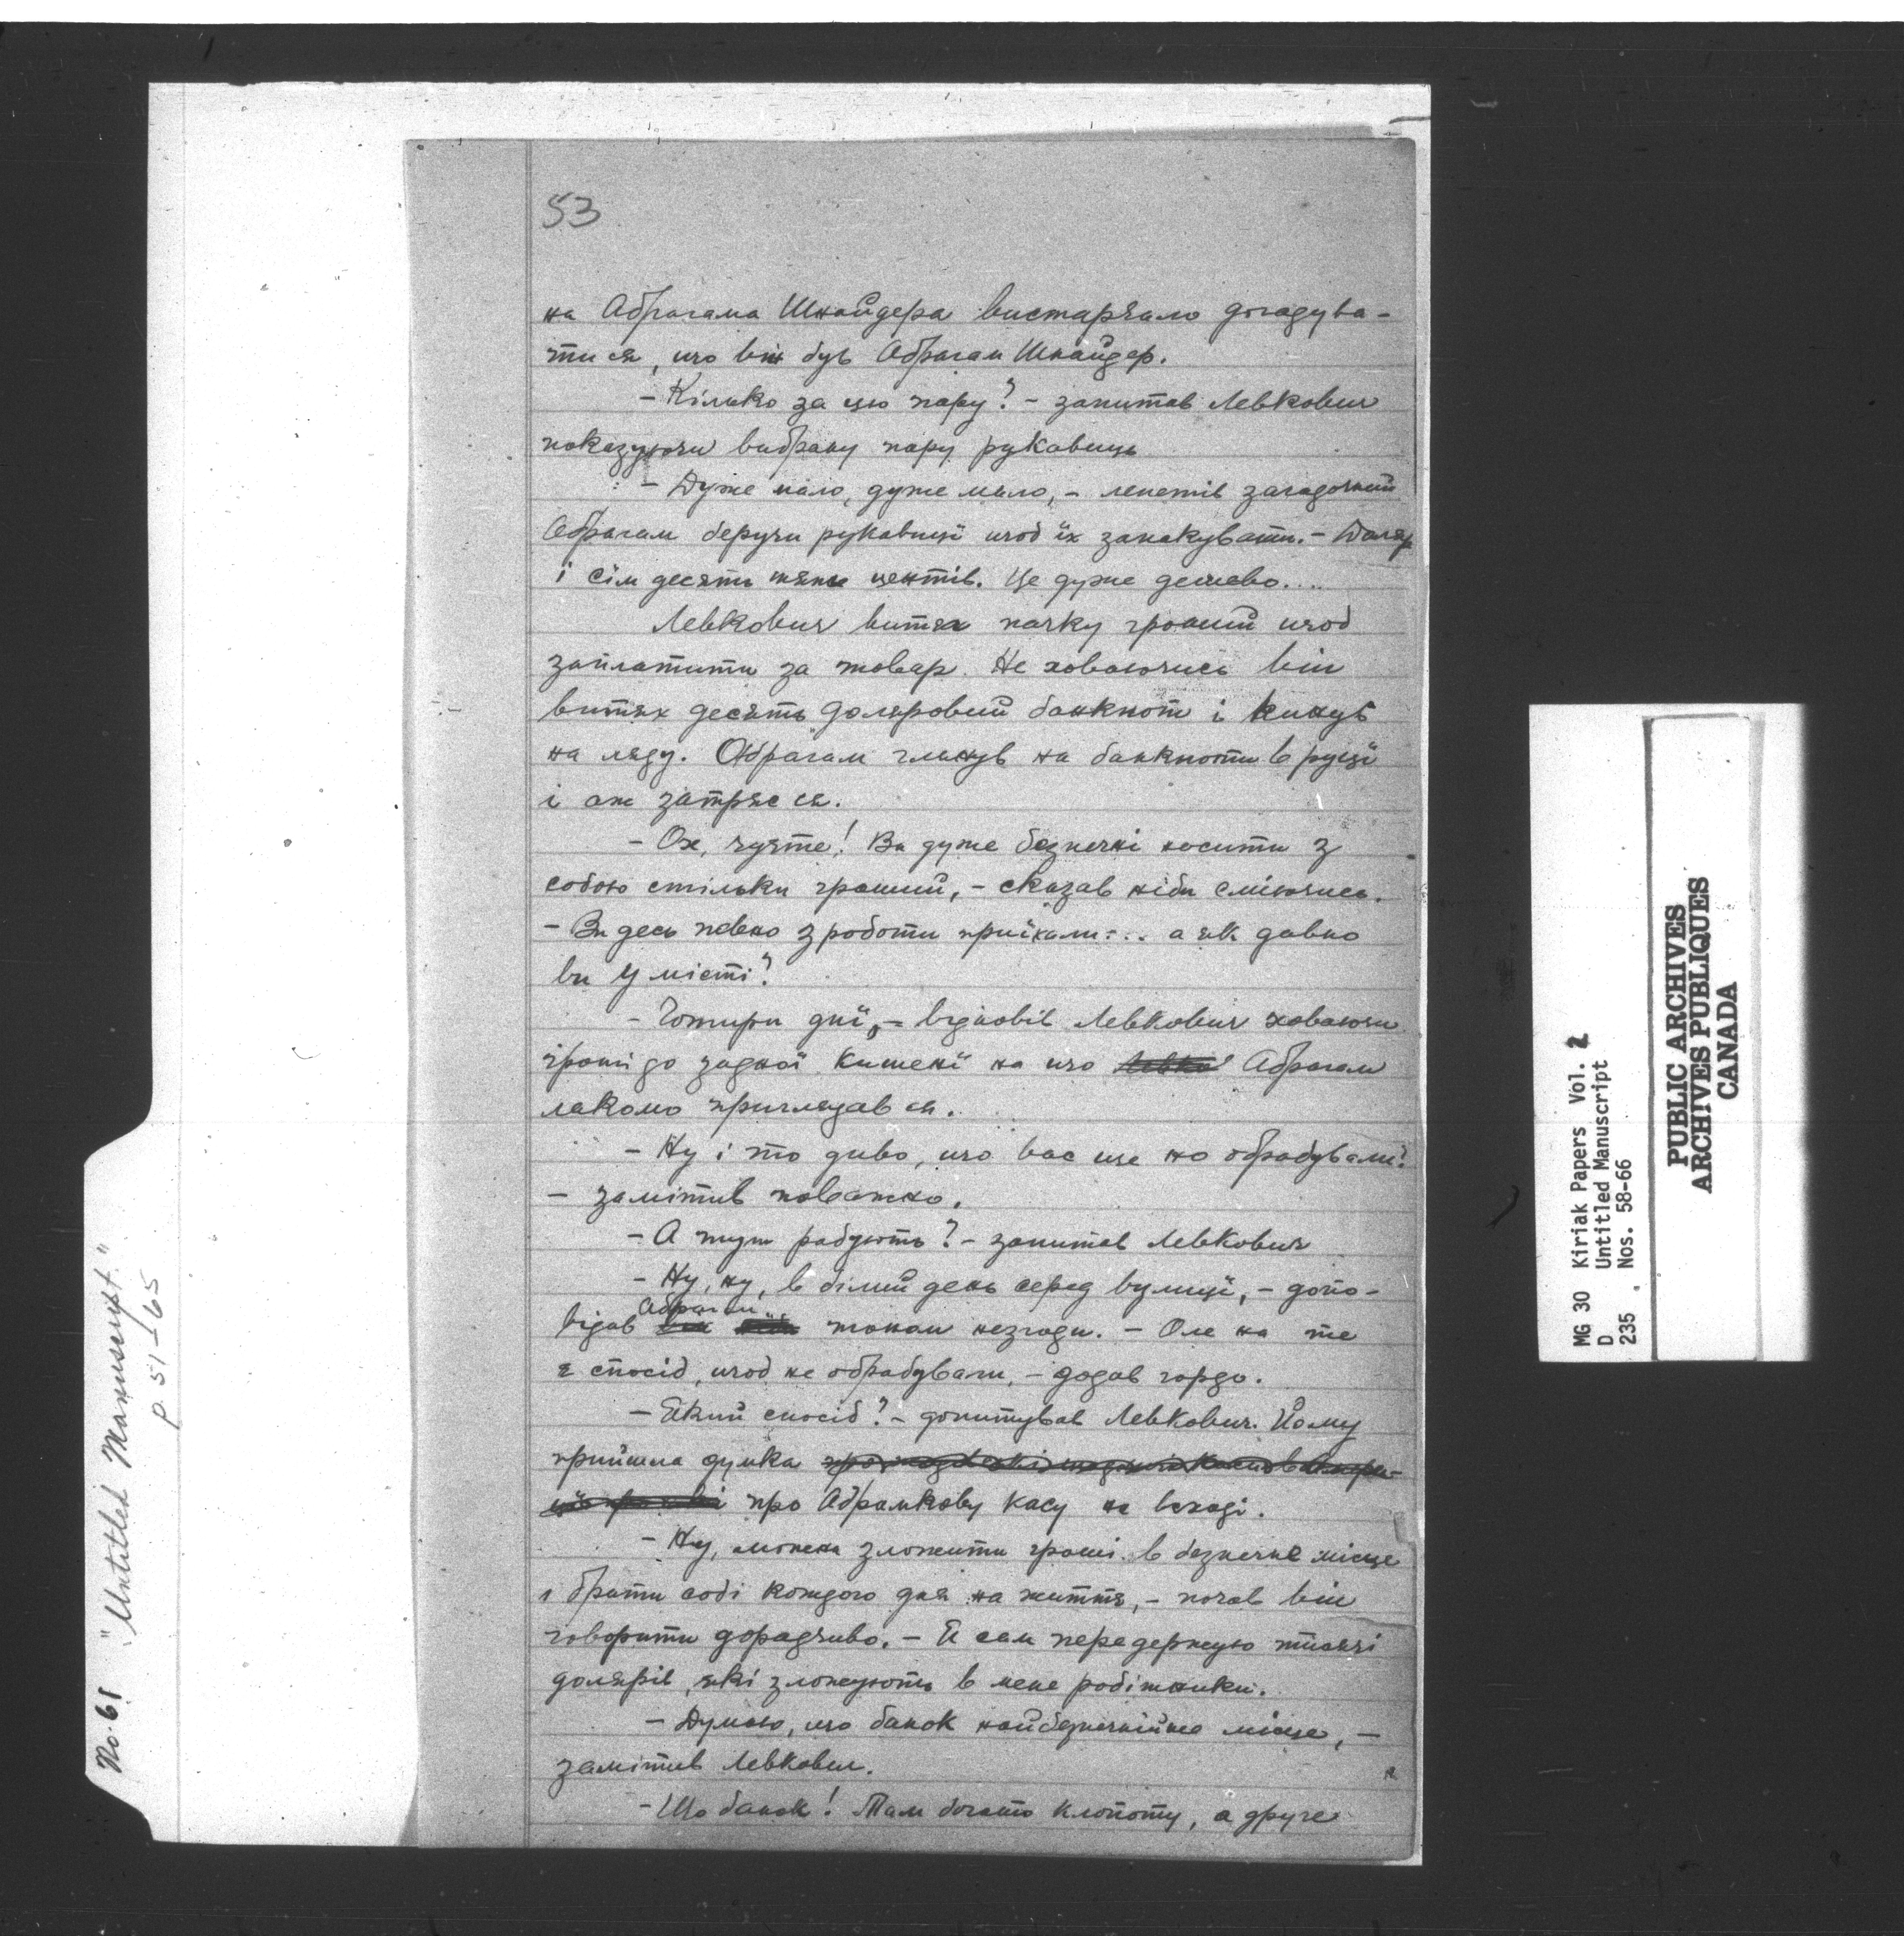 53
на Абрагама Шнайдера вистарчало догадува-
тися, що він був Абрагам Шнайдер.
- Кілько за цю пару? - запитав Левкович
показуючи вибрану пару рукавиць
- Дуже мало, дуже мало, - лепетів загадочний
Абрагам беручи рукавиці щоб їх запакувати. - Доляр
і сімдесять пять центів. Це дуже дешево....
Левкович витяг пачку гроший щоб
заплатити за товар. Не ховаючись він
витях десять доляровий банкнот і кинув
на ляду. Абрагам глянув на банкноти в руці
і аж затряс ся.
- Ох, чуєте! Ви дуже безпечні носити з
собою стільки гроший, - сказав ніби сміючись.
- Ви десь певно з роботи приїхали... а як давно
ви у місті?
- Чотири дні, - відповів Левкович ховаючи
гроші до задної кишені на що Левко Абрагам
лакомо приглядав ся.
- Ну і то диво, що вас ще не обрабували?
- замітив поважно.
- А тут рабують? - запитав Левкович
- Ну, ну, в білий день серед вулиці, - допо-
Абрагам
відав він тоном незгоди. - Але на те
є спосіб, щоб не обрабували, - додав гордо.
- Який спосіб? - допитував Левкович. Йому
прийшла думка
про Абрамкову касу на вході.
- Ну, можна зложити гроші в безпечне місце
і брати собі кождого дня на життя, - почав він
говорити дорадчиво. - Я сам передержую тисячі
долярів, які зложують в мене робітники.
- Думаю, що банок найбезпечнійше місце, -
замітив Левкович.
- Що банок! Там богато клопоту, а друге
No. 61 "Untitled Manuscript."
p. 51-65
MG 30 Kiriak Papers Vol. 2
D Untitled Manuscript
235 Nos. 58-66
PUBLIC ARCHIVES
ARCHIVES PUBLIQUES
CANADA